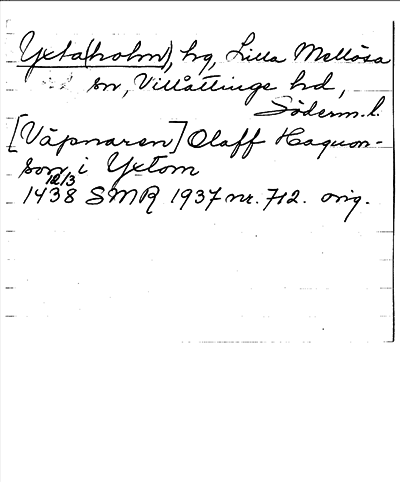 Yxta(holm), hg, Lilla Mellösa
sn, Villåttinge hd,
Söderm. l.
[Väpnaren] Olaff Haquon-
son i Yxtom
12/3
1438 SMR 1937 nr. 712. orig.